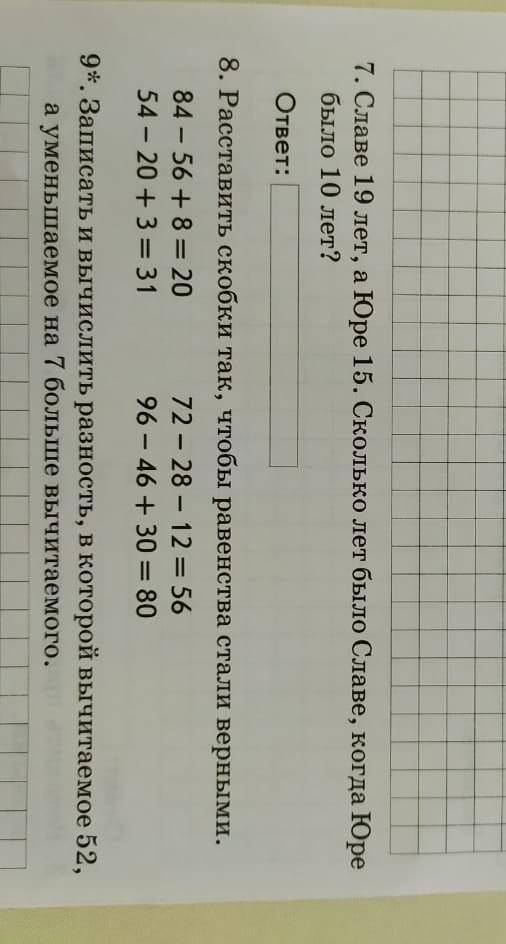 7. Славе 19 лет, а Юре 15. Сколько лет было Славе, когда Юре
было 10 лет?
Ответ:
8. Расставить скобки так, чтобы равенства стали верными.
84 – 56 + 8 = 20 72 – 28 – 12 = 56
54 – 20 + 3 = 31 96 – 46 + 30 = 80
9*. Записать и вычислить разность, в которой вычитаемое 52,
а уменьшаемое на 7 больше вычитаемого.